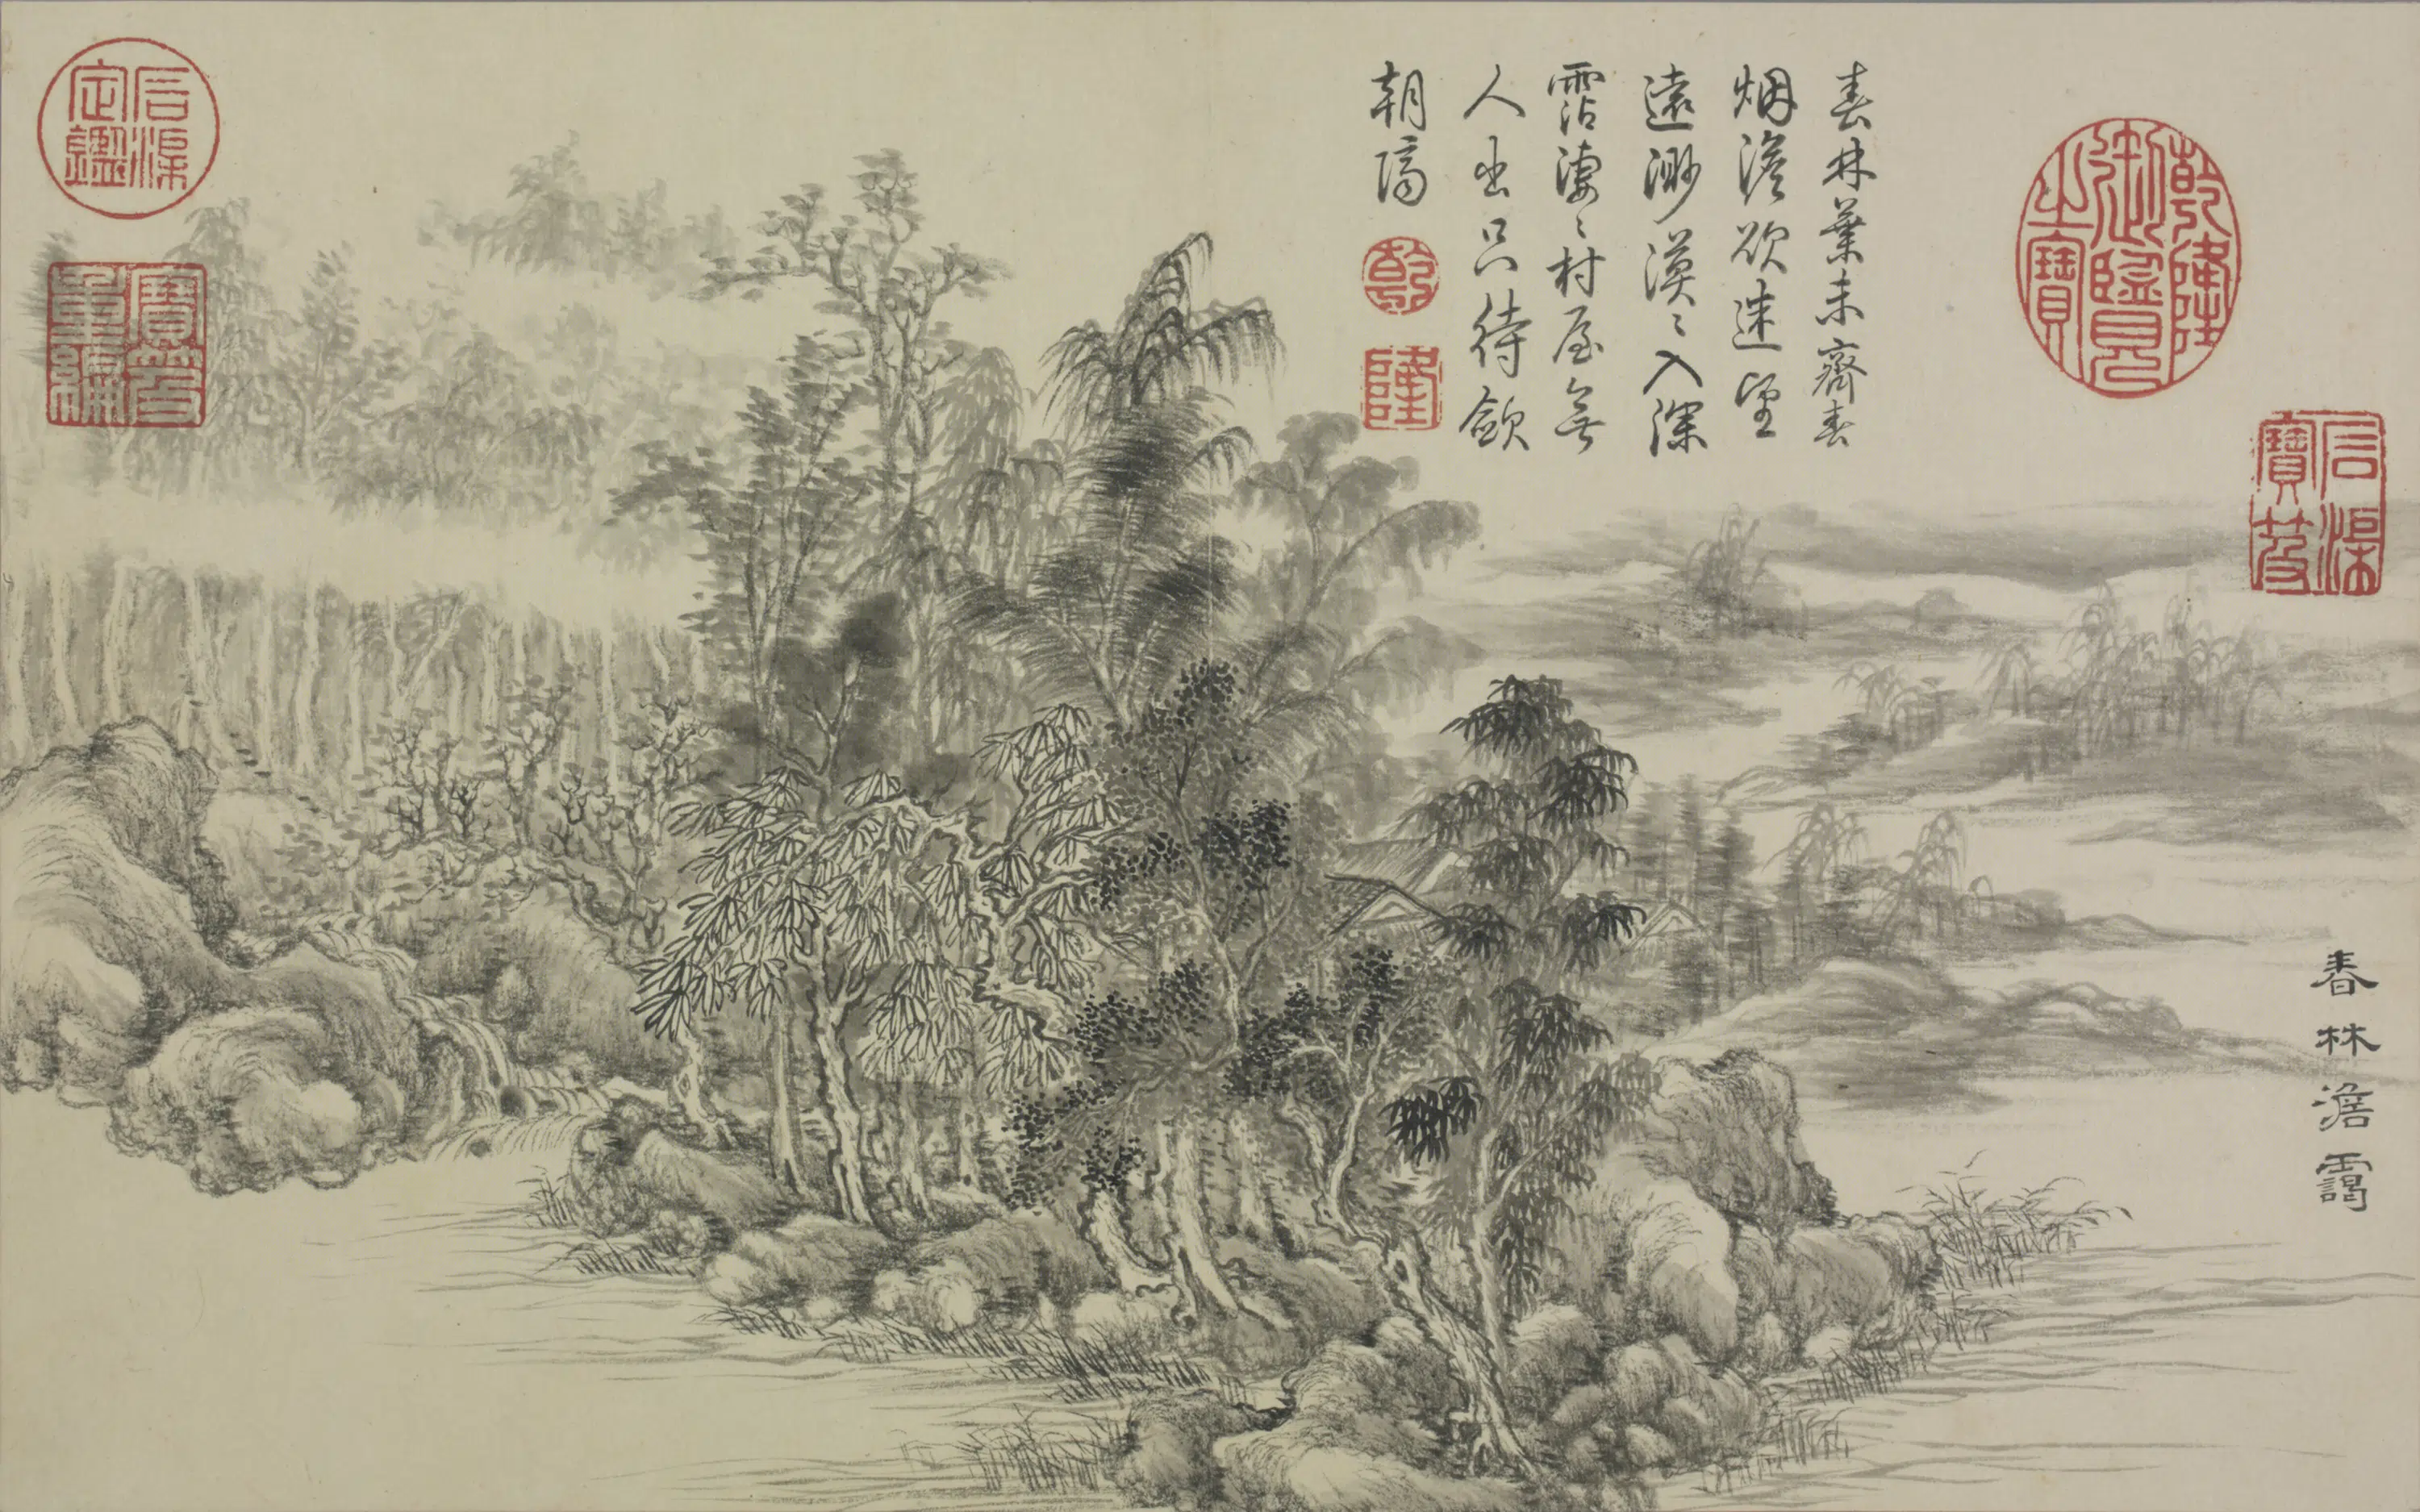 乾隆御覽之寶
石渠寶笈
春林澹靄
春林葉未齊春
烟澹欲迷望
遠渺漠〻入深
霑淒〻村屋無
人出只待斂
朝隮
乾
隆
石渠定鑑
寶笈重編